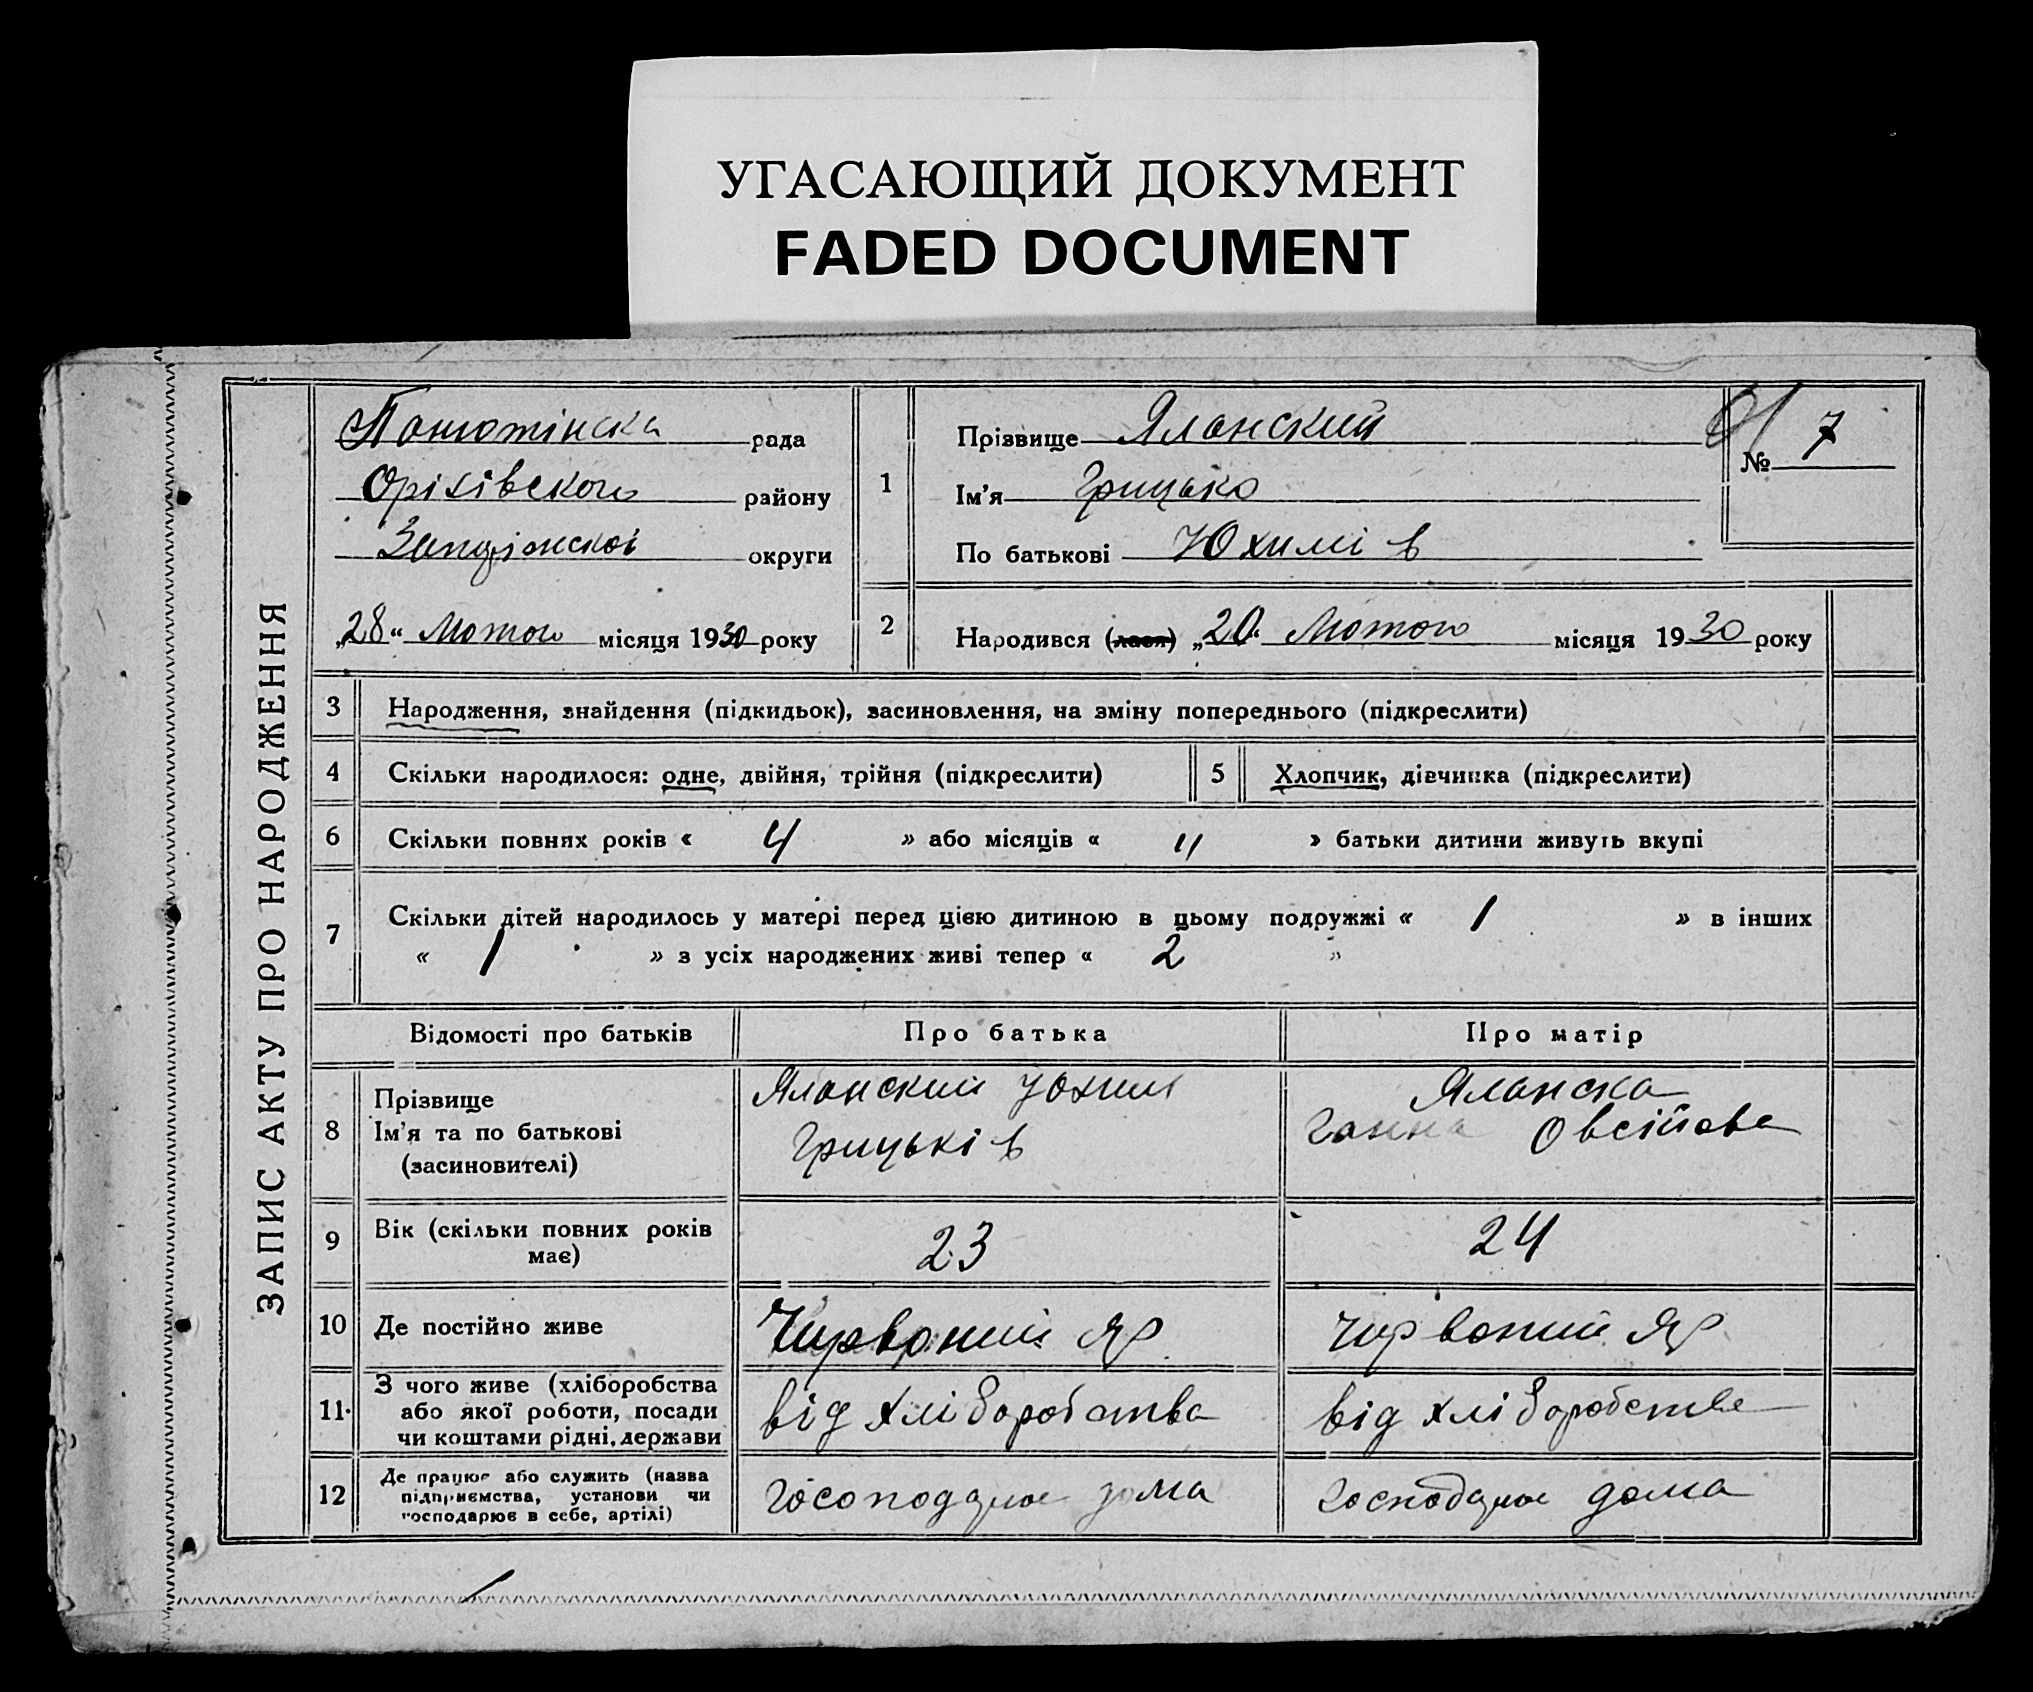 УГАСАЮЩИЙ ДОКУМЕНТ
FADED DOCUMENT
ЗАПИС АКТУ ПРО НАРОДЖЕННЯ
рада
Оріхівского району
Запоріжскоі округи
„28“ Лютого місяця 1930 року
1
Прізвище Яланский
Ім'я Грицько
По батькові Юхимів
№ 7
2
Народився (лася) „20“ Лютого місяця 1930 року
3 Народження, знайдення (підкидьок), засиновлення, на зміну попереднього (підкреслити)
4 Скільки народилося: одне, двійня, трійня (підкреслити) 5 Хлопчик, дівчинка (підкреслити)
6 Скільки повних років « 4 » або місяців « " » батьки дитини живуть вкупі
7 Скільки дітей народилось у матері перед цією дитиною в цьому подружжі « 1 » в інших
« 1 » з усіх народжених живі тепер « 2 »
Відомості про батьків Про батька Про матір
8 Прізвище
Ім'я та по батькові
(засиновителі)
Яланский Юхим
Грицьків
Яланска
Ганна Овсійова
9 Вік (скільки повних років
має)
23
24
10 Де постійно живе
Чирвоний Яр
Чирвоний Яр
11. З чого живе (хліборобства
або якої роботи, посади
чи коштами рідні, держави
від хліборобства
від хліборобства
12 Де працює або служить (назва
підприємства, установи чи
господарює в себе, артілі)
дома
господарює дома